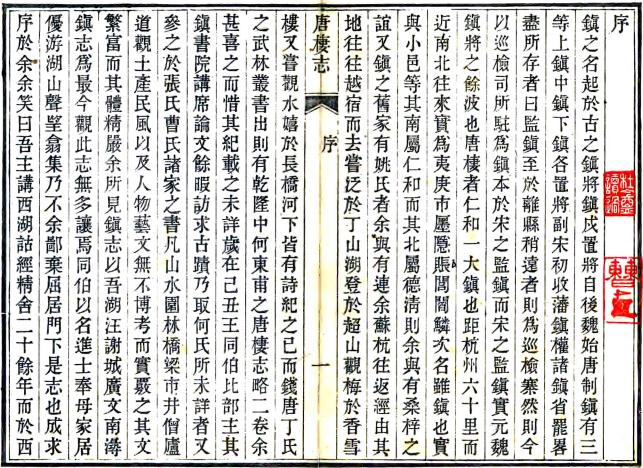 序
鎮之名起於古之鎮將鎮戍置將自後魏始唐制鎮有三
等上鎮中鎮下鎮各置將副宋初收藩鎮權諸鎮省罷畧
盡所存者曰監鎮至於離縣稍遠者則爲巡檢寨然則今
以巡檢司所駐爲鎮本於宋之監鎮而宋之監鎮實元魏
鎮將之餘波也唐棲者仁和一大鎮也距杭州六十里而
近南北往來實爲夷庚市廛隱賑闤闠鱗次名雖鎮實而
與小邑等其南屬仁和而其北屬德清則余與有桑梓之
誼又鎮之舊家有姚氏者余與有連余蘇杭往返經由其
地往往越宿而去嘗泛於丁山湖登於超山觀梅於香雪
唐棲志 序 一
樓又嘗觀水嬉於長橋河下皆有詩紀之已而錢唐丁氏
之武林叢書出則有乾隆中何東甫之唐棲志略二卷余
甚喜之而惜其紀載之未詳歲在己丑王同伯比部主其
鎮書院講席論文餘暇訪求古蹟乃取何氏所未詳者又
參之於張氏曹氏諸家之書凡山水園林橋梁市井僧廬
道觀土產民風以及人物藝文無不博考而實覈之其文
繁富而其體精嚴余所見鎮志以吾湖汪謝城廣文南潯
鎮志爲最今觀此志無多讓焉同伯以名進士奉母家居
優游湖山聲望翕集乃不余鄙棄屈居門下是志也成求
序於余余笑曰吾主講西湖詁經精舍二十餘年而於西